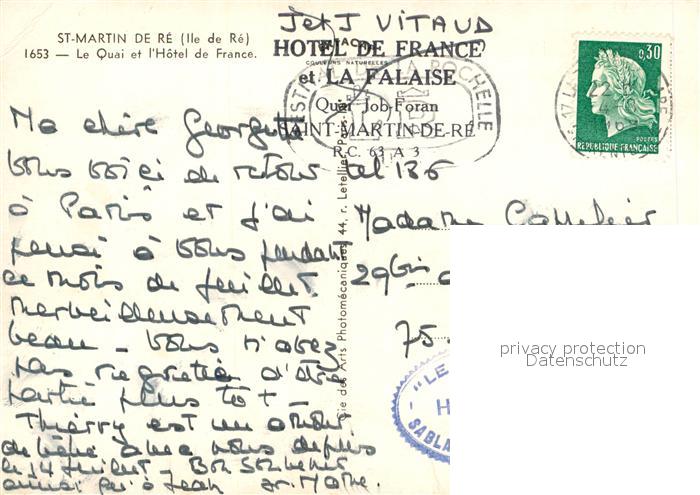 ST-MARTIN DE RÉ (Ile de Ré)
1653 — Le Quai et l'Hôtel de France.
J et J VITAUD
HOTEL DE FRANCE
COULEURS NATURELLES
et LA FALAISE
LA ROCHELLE
Quai Job-Foran
SAINT-MARTIN-DE-RÉ
R.C. 63 A 3
tel 136
0,30
POSTES
REPUBLIQUE FRANÇAISE
Ma chère Georgette
vous voici de retour
à Paris et j'ai
pensé à vous pendant
ce mois de juillet
merveilleusement
beau - vous n'avez
pas regretté d'être
partie plus tôt -
Thierry est un amour
de bébé avec nous depuis
le 14 Juillet - Bon Souvenir
aussi à Jean
Madame
29 bis
75
Cie des Arts Photomécaniques 44, r. Letellier, Paris
"LE
H
SABLA
privacy protection
Datenschutz